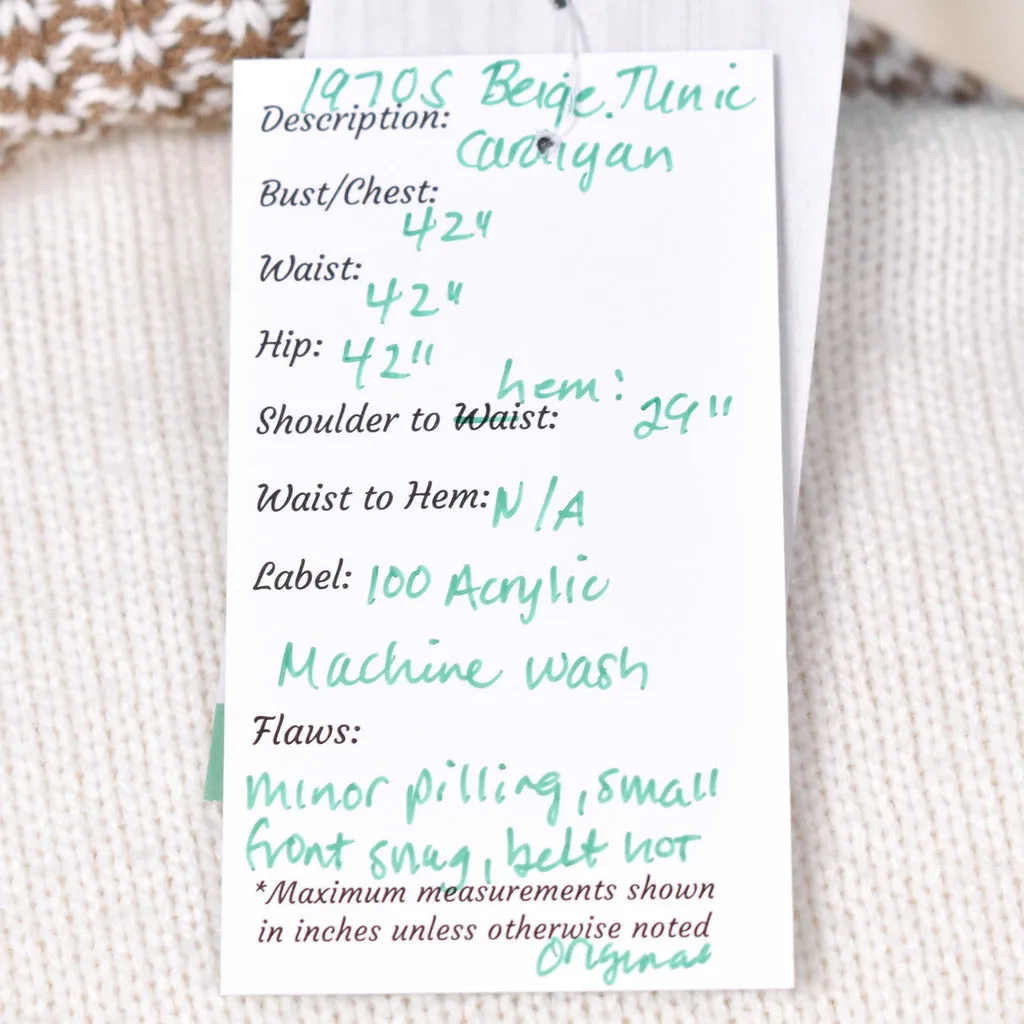 1970s Beige Tunic
Description:
Cardigan
Bust/Chest:
42"
Waist:
42"
Hip: 42"
hem:
Shoulder to Waist: 29"
Waist to Hem: N/A
Label: 100 Acrylic
Machine wash
Flaws:
minor pilling, small
front snag, belt not
*Maximum measurements shown
in inches unless otherwise noted
original